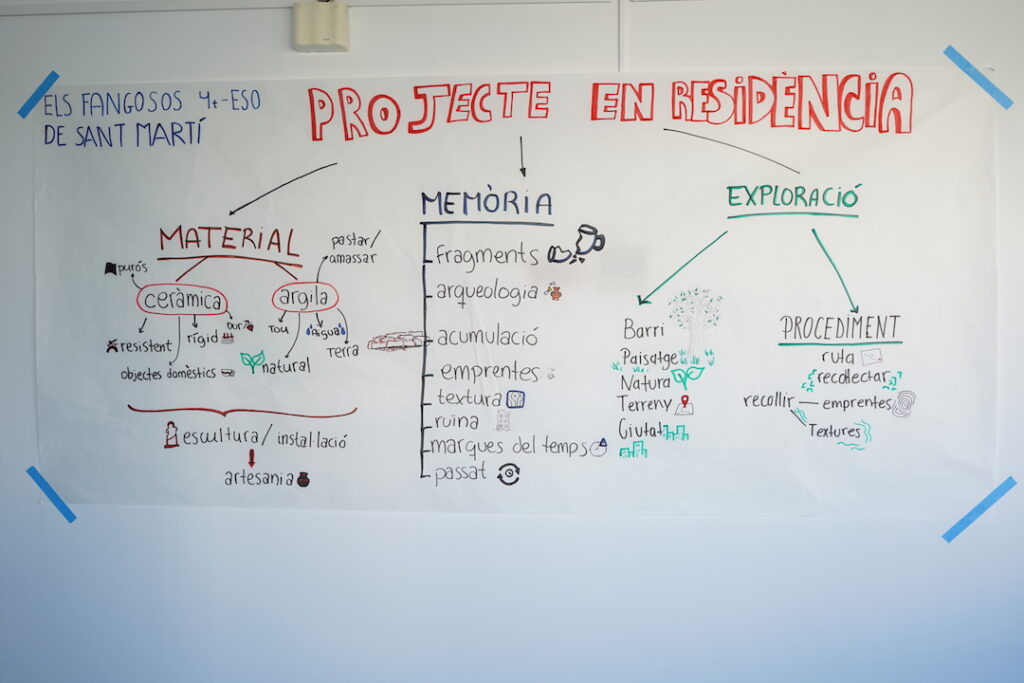 ELS FANGOSOS 4t-ESO
DE SANT MARTÍ
PROJECTE EN RESIDÈNCIA
MATERIAL
porós
ceràmica
resistent
objectes domèstics
rígid
Dur
pastar/
amassar
argila
TOU
Aigua
Terra
natural
escultura/instal·lació
artesania
MEMÒRIA
fragments
arqueologia
acumulació
emprentes
textura
ruina
marques del temps
passat
EXPLORACIÓ
Barri
Paisatge
Natura
Terreny
Ciutat
PROCEDIMENT
ruta
recol·lectar
recollir — emprentes
Textures